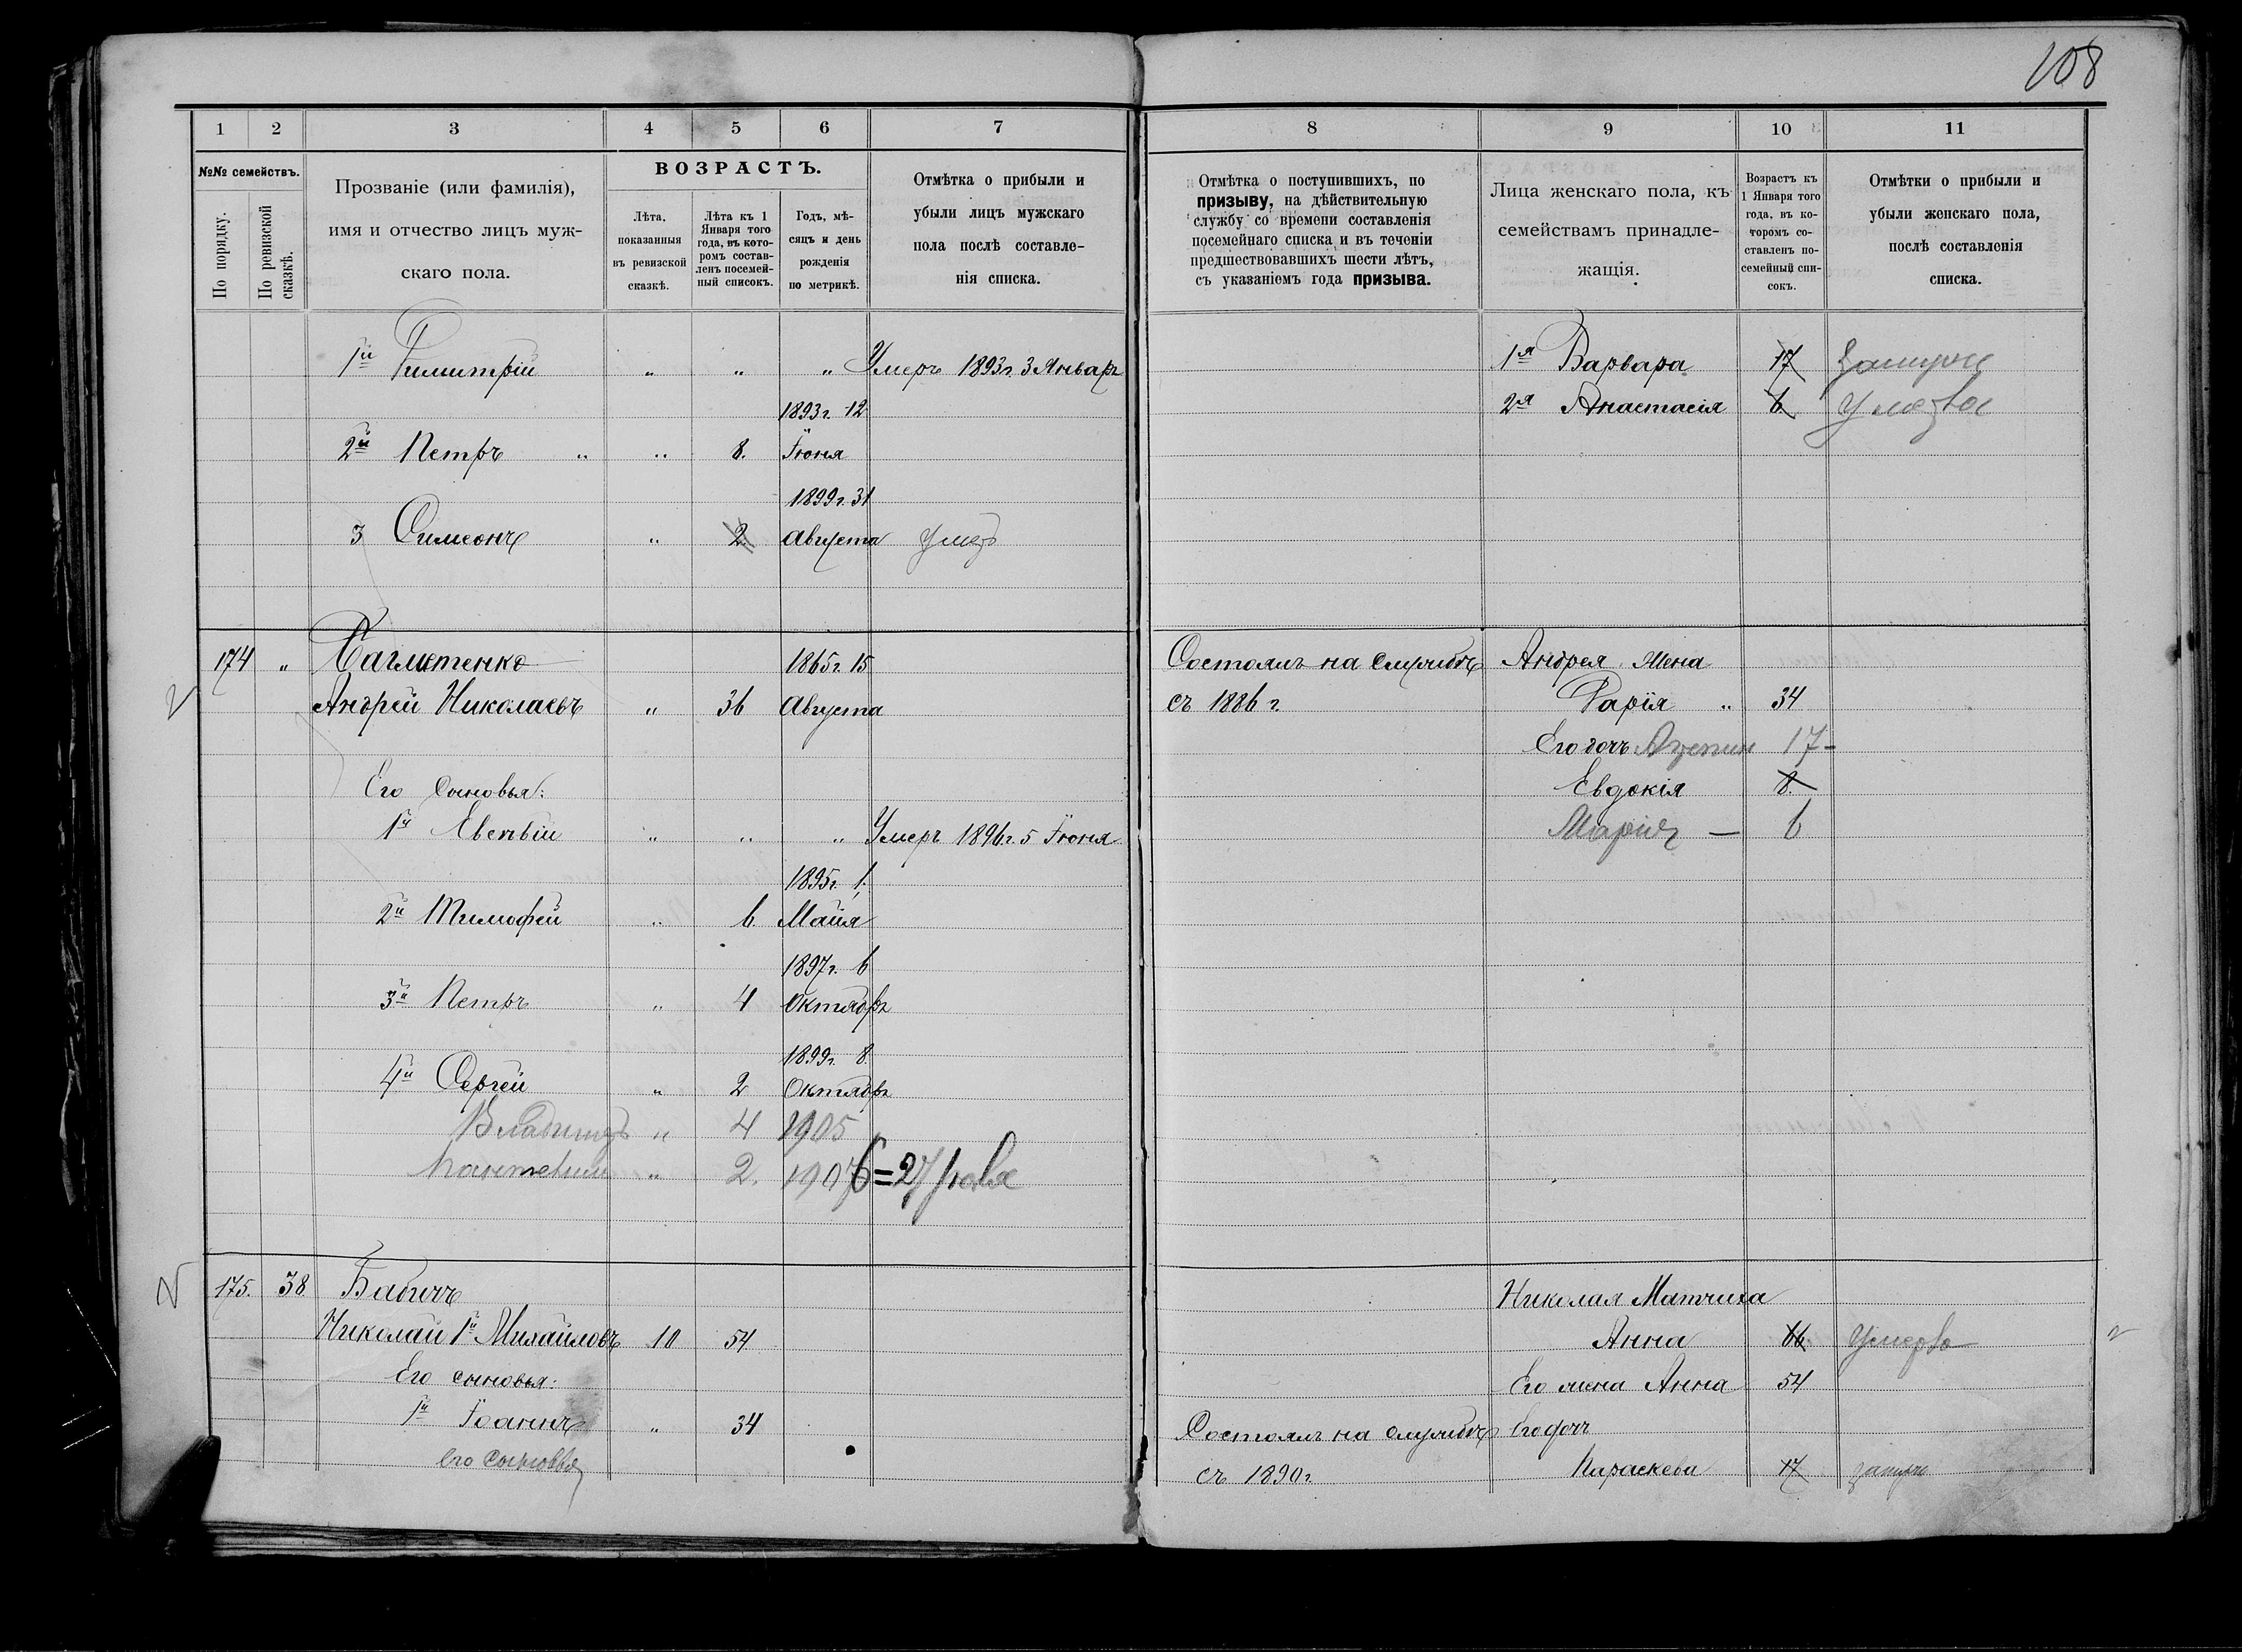 108
1 2 3 4 5 6 7
№№ семействъ.
По порядку.
По ревизской сказкѣ.
Прозваніе (или фамилія),
имя и отчество лицъ муж-
скаго пола.
ВОЗРАСТЪ.
Лѣта,
показанныя
въ ревизской
сказкѣ.
Лѣта къ 1
Января того
года, въ кото-
ромъ состав-
ленъ посемей-
ный списокъ.
Годъ, мѣ-
сяцъ и день
рожденія
по метрикѣ.
Отмѣтка о прибыли и
убыли лицъ мужскаго
пола послѣ составле-
нія списка.
1й Димитрій " " " Умеръ 1893г. 3 Январь
1893г. 12
2й Петръ " " 8. Іюня
1899г. 31
3 Симеонъ " 2 Августа умеръ
174 " 1865г. 15
Андрей Николаевъ " 36 Августа
Его сыновья:
1й " " " Умеръ 1896г. 5 Іюня
1895г. 1
2й Тимофей " 6. Маія
1897г. 6
3й Петръ " 4 Октябрь
1899г. 8.
4й Сергей " 2 Октябрь
Владимиръ " 4 1905
" 2. 1907
175. 38 Бабичъ
Николай 1й Михайловъ 10 54
Его сыновья:
1й Іоаннъ " 34
Его сыновья
8 9 10 11
Отмѣтка о поступившихъ, по
призыву, на дѣйствительную
службу со времени составленія
посемейнаго списка и въ теченіи
предшествовавшихъ шести лѣтъ,
съ указаніемъ года призыва.
Лица женскаго пола, къ
семействамъ принадле-
жащія.
Возрастъ къ
1 Января того
года, въ ко-
торомъ со-
ставленъ по-
семейный спи-
сокъ.
Отмѣтки о прибыли и
убыли женскаго пола,
послѣ составленія
списка.
1я Варвара 17 Замужс
2я Анастасія 6 Умерла
Состоялъ на службѣ Андрея жена
съ 1886 г. Дарія " 34
Его дочь 17-
Евдокія 8.
Марія — 6
Николая Матчиха
Анна 66 Умерла
Его жена Анна 54
Состоялъ на службѣ Его дочь
съ 1890г. Параскева 17 замуж